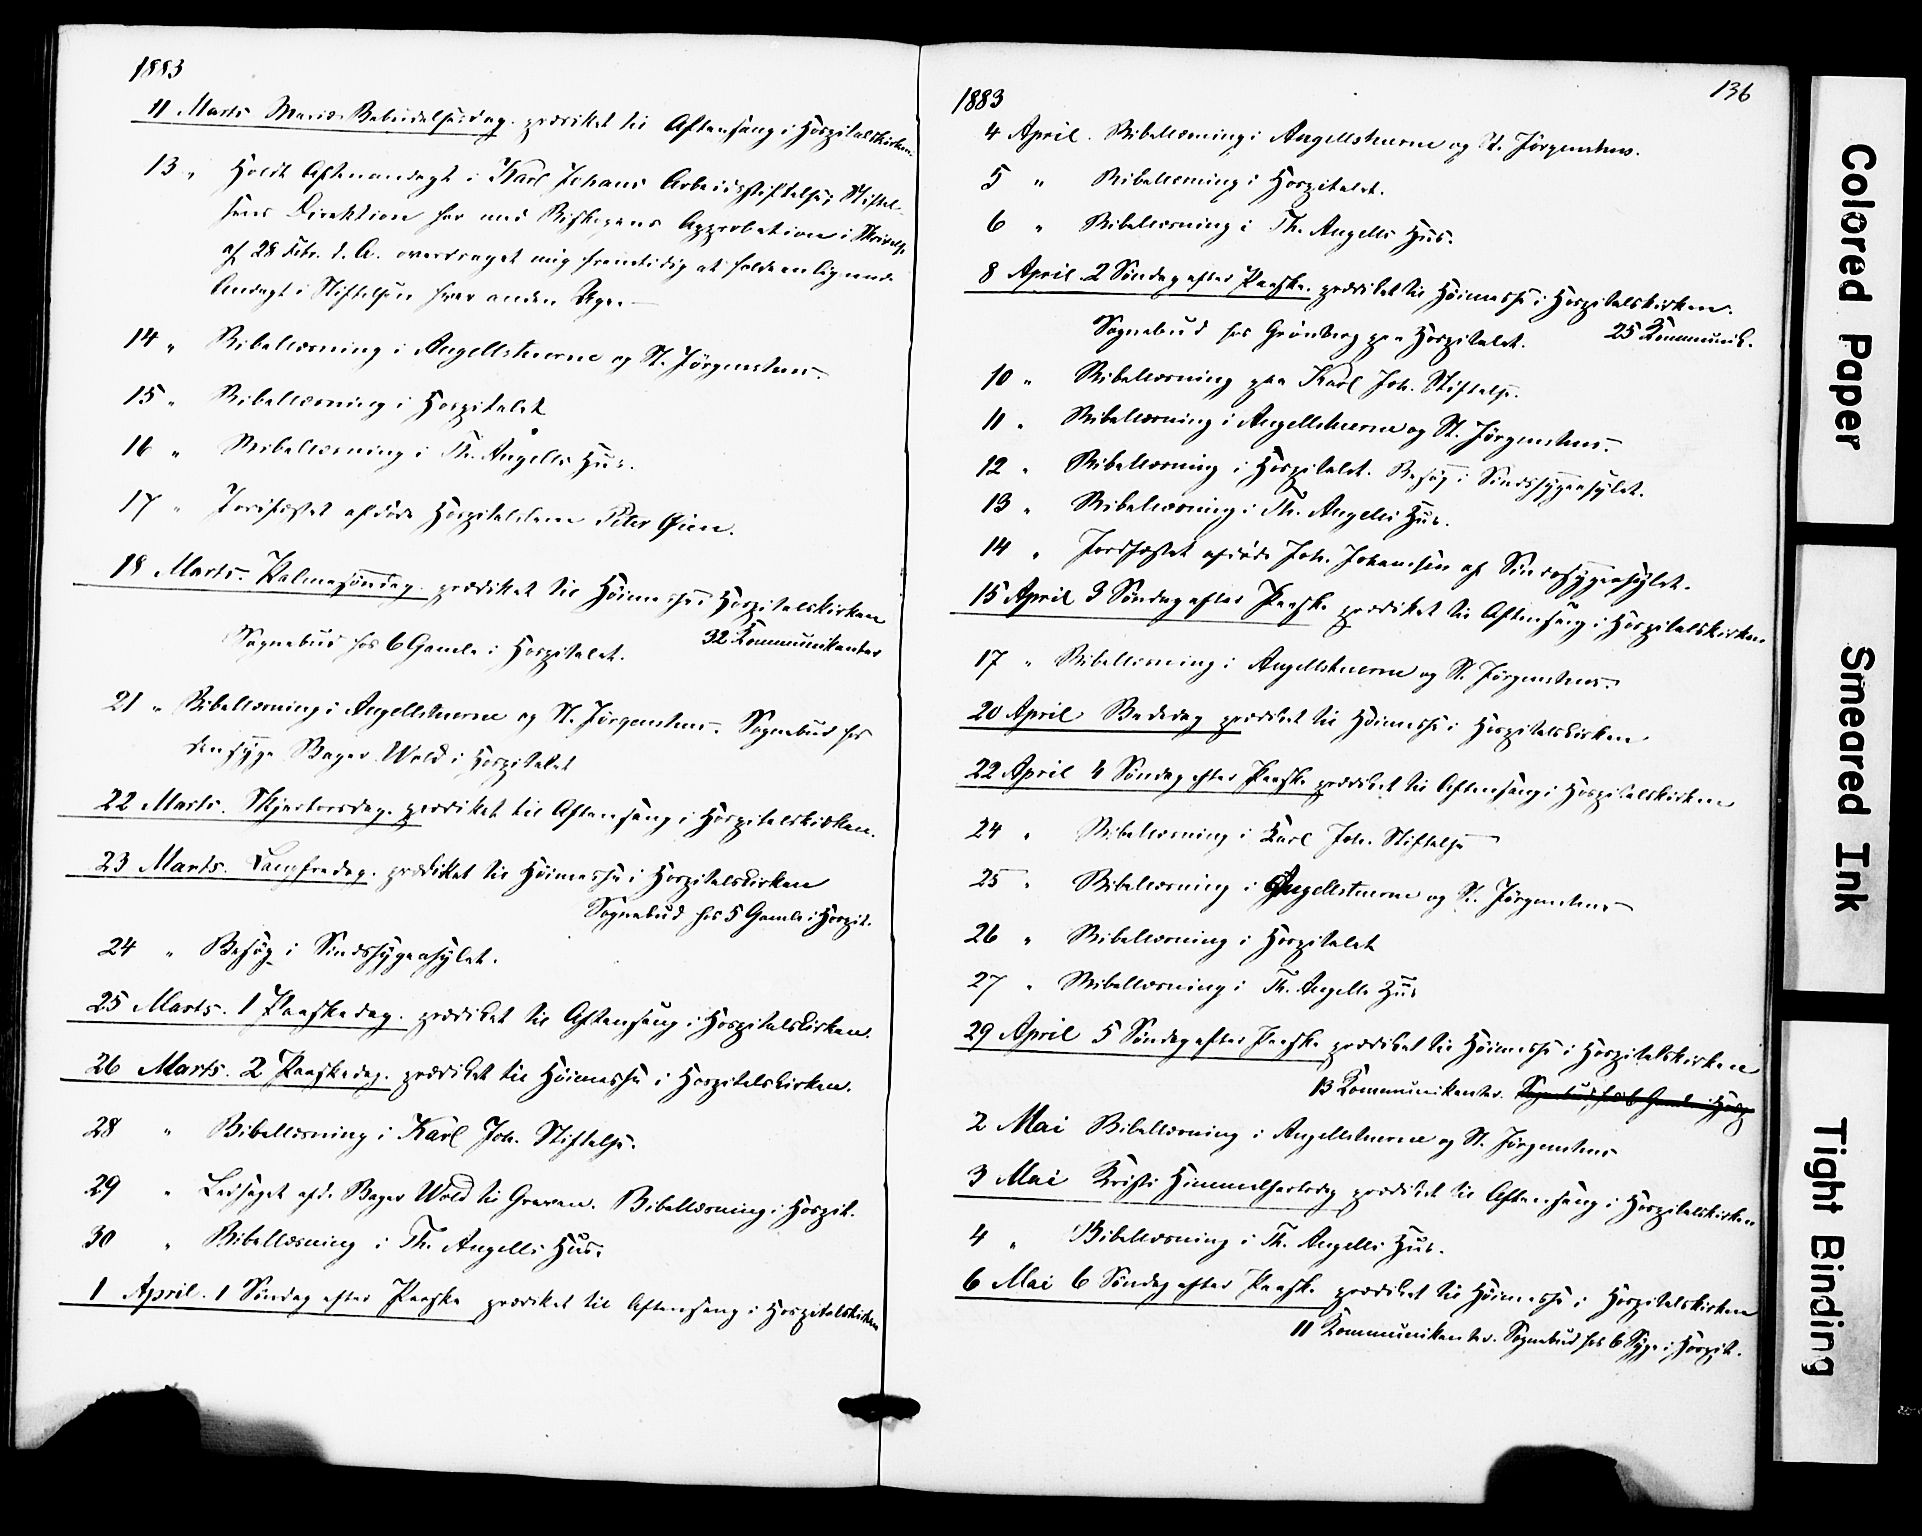 1883
11 Marts Mariæ Bebudelsesdag. prædiket til Aftensang i Hospitalskirken.
13 „ Holdt Aftenandagt i Karl Johans Arbeidsstiftelse; Stiftel-
sens Direktion har med Biskopens Approbation i Skrivelse
af 28 Febr. d. A. overdraget mig fremtidig at holde en lignende
Andagt i Stiftelsen hver anden Uge.
14 „ Bibellæsning i Angellstuerne og St. Jörgenshus.
15 „ Bibellæsning i Hospitalet
16 „ Bibellæsning i Th. Angells Hus.
17 „ Jordfæstet afdöde Hospitalslem Peter Öien.
18 Marts. Palmesöndag. prædiket til Höimesse i Hospitalskirken
32 Kommunikanter
Sognebud hos 6 Gamle i Hospitalet.
21 „ Bibellæsning i Angellstuerne og St. Jörgenshus. Sognebud hos
den syge Bager Wold i Hospitalet
22 Marts. Skjærtorsdag. prædiket til Aftensang i Hospitalskirken.
23 Marts. Langfredag. prædiket til Höimesse i Hospitalskirken
Sognebud hos 5 Gamle i Hospit.
24 „ Besög i Sindssygeasylet.
25 Marts. 1 Paaskedag. prædiket til Aftensang i Hospitalskirken.
26 Marts. 2 Paaskedag. prædiket til Höimesse i Hospitalskirken.
28 „ Bibellæsning i Karl Joh. Stiftelse.
29 „ Ledsaget afd. Bager Wold til Graven. Bibellæsning i Hospit.
30 „ Bibellæsning i Th. Angells Hus.
1 April. 1 Söndag efter Paaske prædiket til Aftensang i Hospitalskirken
136
1883
4 April. Bibellæsning i Angellstuerne og St. Jörgenshus.
5 „ Bibellæsning i Hospitalet.
6 „ Bibellæsning i Th. Angells Hus.
8 April. 2 Söndag efter Paaske. prædiket til Höimesse i Hospitalskirken.
25 Kommunik.
Sognebud hos Grönberg paa Hospitalet.
10 „ Bibellæsning paa Karl Joh. Stiftelse.
11 „ Bibellæsning i Angellstuerne og St. Jörgenshus.
12 „ Bibellæsning i Hospitalet. Besög i Sindssygeasylet.
13 „ Bibellæsning i Th. Angells Hus.
14 „ Jordfæstet afdöde Joh. Johansen af Sindssygeasylet.
15 April 3 Söndag efter Paaske prædiket til Aftensang i Hospitalskirken
17 „ Bibellæsning i Angellstuerne og St. Jörgenshus.
20 April Bededag prædiket til Höimesse i Hospitalskirken
22 April 4 Söndag efter Paaske prædiket til Aftensang i Hospitalskirken
24 „ Bibellæsning i Karl Joh. Stiftelse
25 „ Bibellæsning i Angellstuerne og St. Jörgenshus
26 „ Bibellæsning i Hospitalet
27 „ Bibellæsning i Th. Angells Hus
29 April 5 Söndag efter Paaske prædiket til Höimesse i Hospitalskirken
13 Kommunikanter. Sognebud hos 6 Gamle i Hosp
2 Mai Bibellæsning i Angellstuerne og St. Jörgenshus
3 Mai Kristi Himmelfartsdag prædiket til Aftensang i Hospitalskirken
4 „ Bibellæsning i Th. Angells Hus.
6 Mai 6 Söndag efter Paaske prædiket til Höimesse i Hospitalskirken
11 Kommunikanter. Sognebud hos 6 Syge i Hospit.
Colored Paper
Smeared Ink
Tight Binding